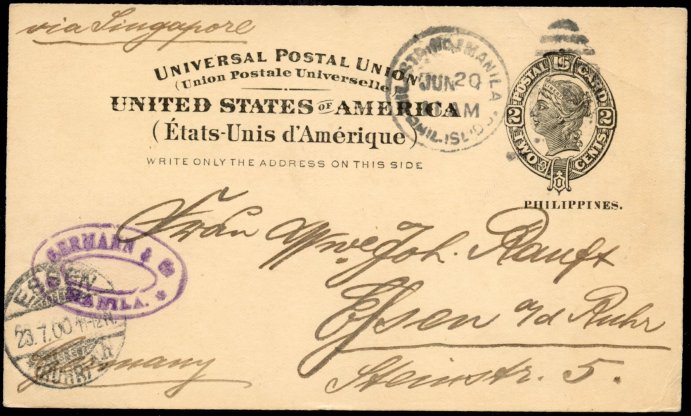 via Singapore
UNIVERSAL POSTAL UNION
(Union Postale Universelle)
UNITED STATES OF AMERICA
(États-Unis d'Amérique)
WRITE ONLY THE ADDRESS ON THIS SIDE
MANILA
JUN 20
AM
PHIL. ISL'DS
POSTAL CARD
2 2
TWO CENTS
PHILIPPINES.
GERMANN & Co
MANILA.
ESSEN
23.7.00 11-12N.
(RUHR)
Frau Wwe Joh. Rauft
Essen a/d Ruhr
Steinstr. 5.
Germany